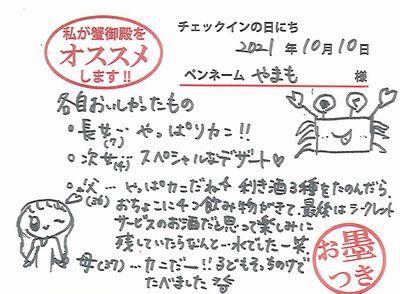 私が蟹御殿を
オススメ
します!!
チェックインの日にち
2021年10月10日
ペンネーム やまも 様
各自おいしかったもの
・長女… やっぱりカニ!!
(7)
・次女… スペシャルなデザート♡
(4)
・父… やっぱカニだね 利き酒3種をたのんだら、
(36) おちょこに4つ飲み物がきて、最後はラークレット
サービスのお酒だと思って楽しみに
残していたらなんと…水でした―笑
・母(37)…カニだー!!子どもそっちのけで
たべました
お墨
つき